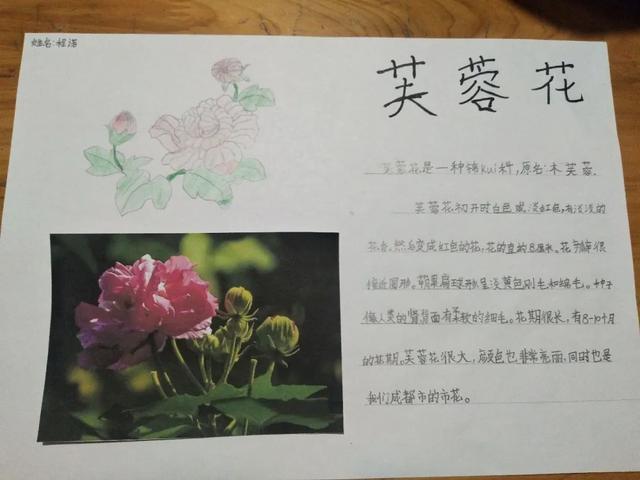 姓名:程诺
芙蓉花
芙蓉花是一种锦kui科,原名:木芙蓉.
芙蓉花初开时白色或淡红色,有淡淡的
花香.然后变成红色的花,花的直约8厘米。花瓣很
接近圆形。蒴果扁球形呈淡黄色刚毛和绵毛。种子
像人类的肾背面有柔软的细毛。花期很长,有8-10个月
的花期。芙蓉花很大,颜色也非常亮丽,同时也是
我们成都市的市花。